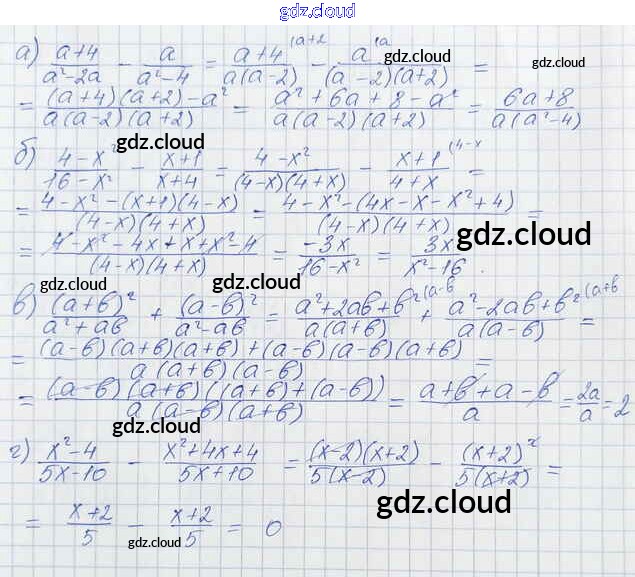 gdz.cloud
а) (a+4)/(a²-2a) - a/(a²-4) = (a+4)/(a(a-2)) |a+2 - a/((a-2)(a+2)) |a =
= ((a+4)(a+2)-a²)/(a(a-2)(a+2)) = (a²+6a+8-a²)/(a(a-2)(a+2)) = (6a+8)/(a(a²-4))
gdz.cloud
gdz.cloud
gdz.cloud
gdz.cloud
б) (4-x²)/(16-x²) - (x+1)/(x+4) = (4-x²)/((4-x)(4+x)) - (x+1)/(4+x) (4-x =
= (4-x²-(x+1)(4-x))/((4-x)(4+x)) = (4-x²-(4x-x-x²+4))/((4-x)(4+x)) =
= (4-x²-4x+x+x²-4)/((4-x)(4+x)) = (-3x)/(16-x²) = 3x/(x²-16).
gdz.cloud
gdz.cloud
в) (a+b)²/(a²+ab) + (a-b)²/(a²-ab) = (a²+2ab+b²)/(a(a+b)) (a-b + (a²-2ab+b²)/(a(a-b)) (a+b =
= ((a-b)(a+b)(a+b)+(a-b)(a-b)(a+b))/(a(a+b)(a-b)) =
= ((a-b)(a+b)((a+b)+(a-b)))/(a(a-b)(a+b)) = (a+b+a-b)/a = 2a/a = 2
gdz.cloud
г) (x²-4)/(5x-10) - (x²+4x+4)/(5x+10) = ((x-2)(x+2))/(5(x-2)) - (x+2)²/(5(x+2)) =
gdz.cloud
gdz.cloud
= (x+2)/5 - (x+2)/5 = 0
gdz.cloud